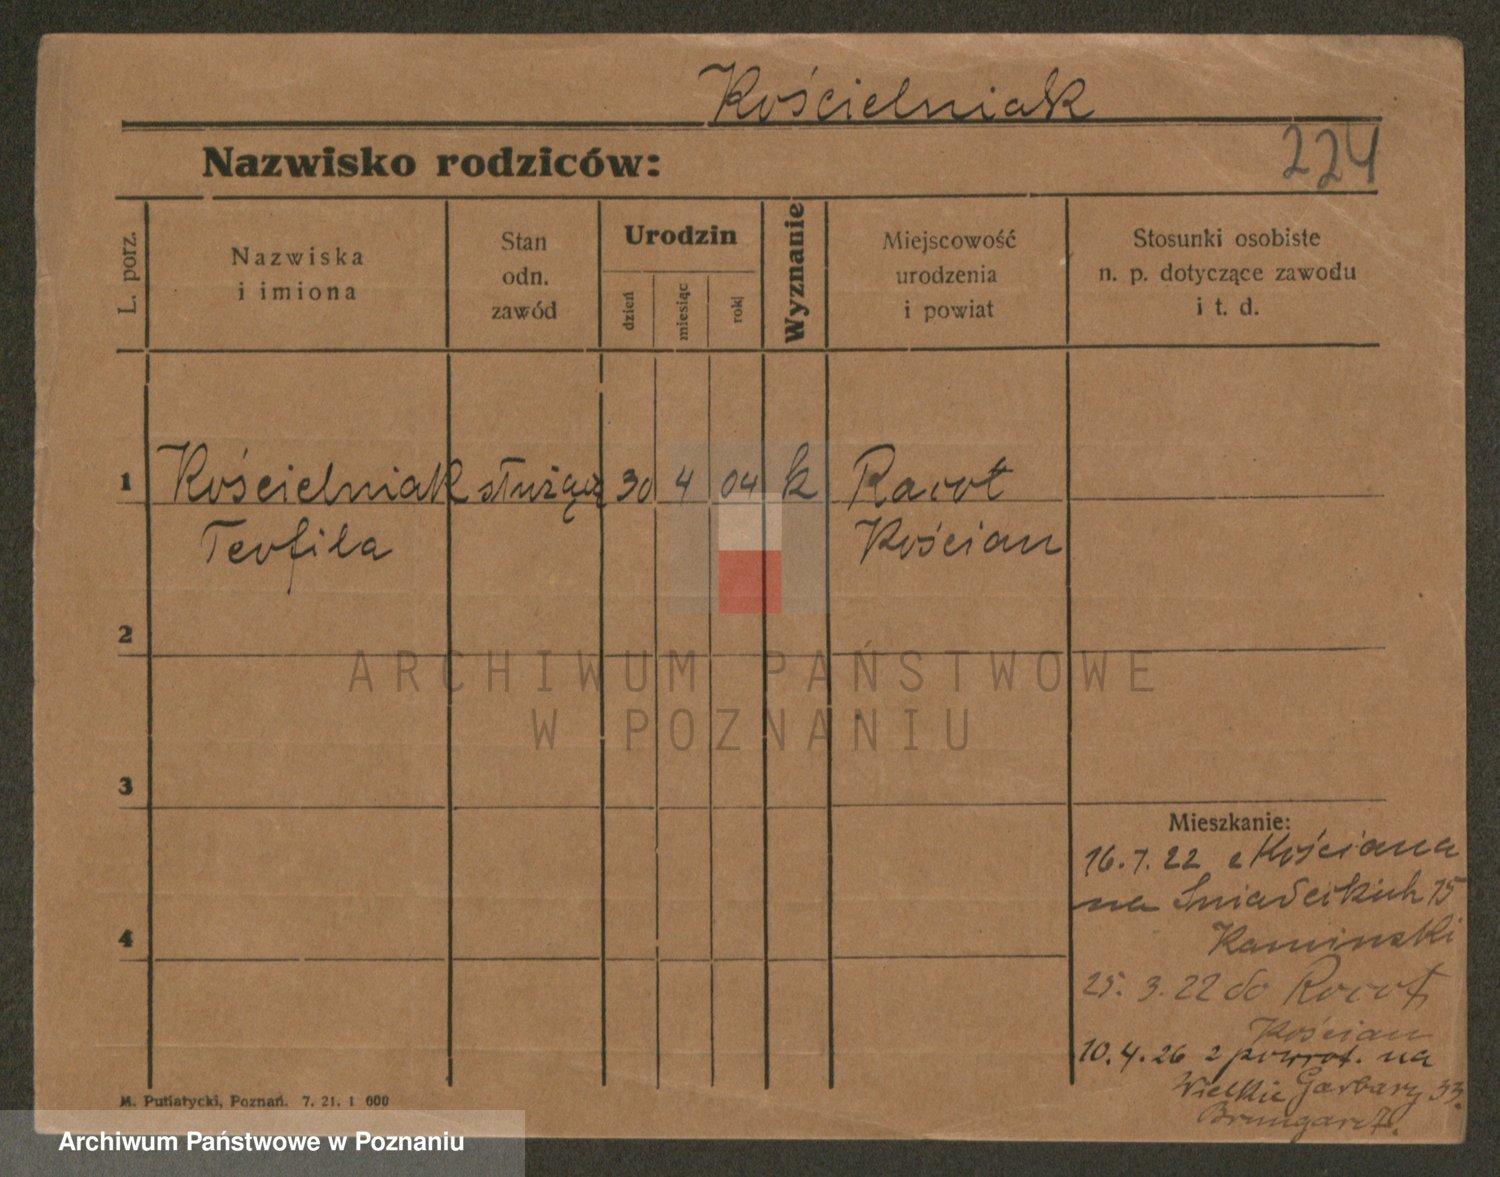 Kościelniak
Nazwisko rodziców:
224
L. porz.
Nazwiska
i imiona
Stan
odn.
zawód
Urodzin
dzień
miesiąc
rok
Wyznanie
Miejscowość
urodzenia
i powiat
Stosunki osobiste
n. p. dotyczące zawodu
i t. d.
1 Kościelniak służąca 30 4 04 k Racot
Teofila Kościan
2
3
4
Mieszkanie:
16.7.22 z Kościana
na Śniadeckich 15
Kaminski
25. 3. 22 do Racot
Kościan
10.4.26 z powrot. na
Wielkie Garbary 33.
M. Putiatycki, Poznań. 7. 21. 1 000
ARCHIWUM PAŃSTWOWE
W POZNANIU
Archiwum Państwowe w Poznaniu